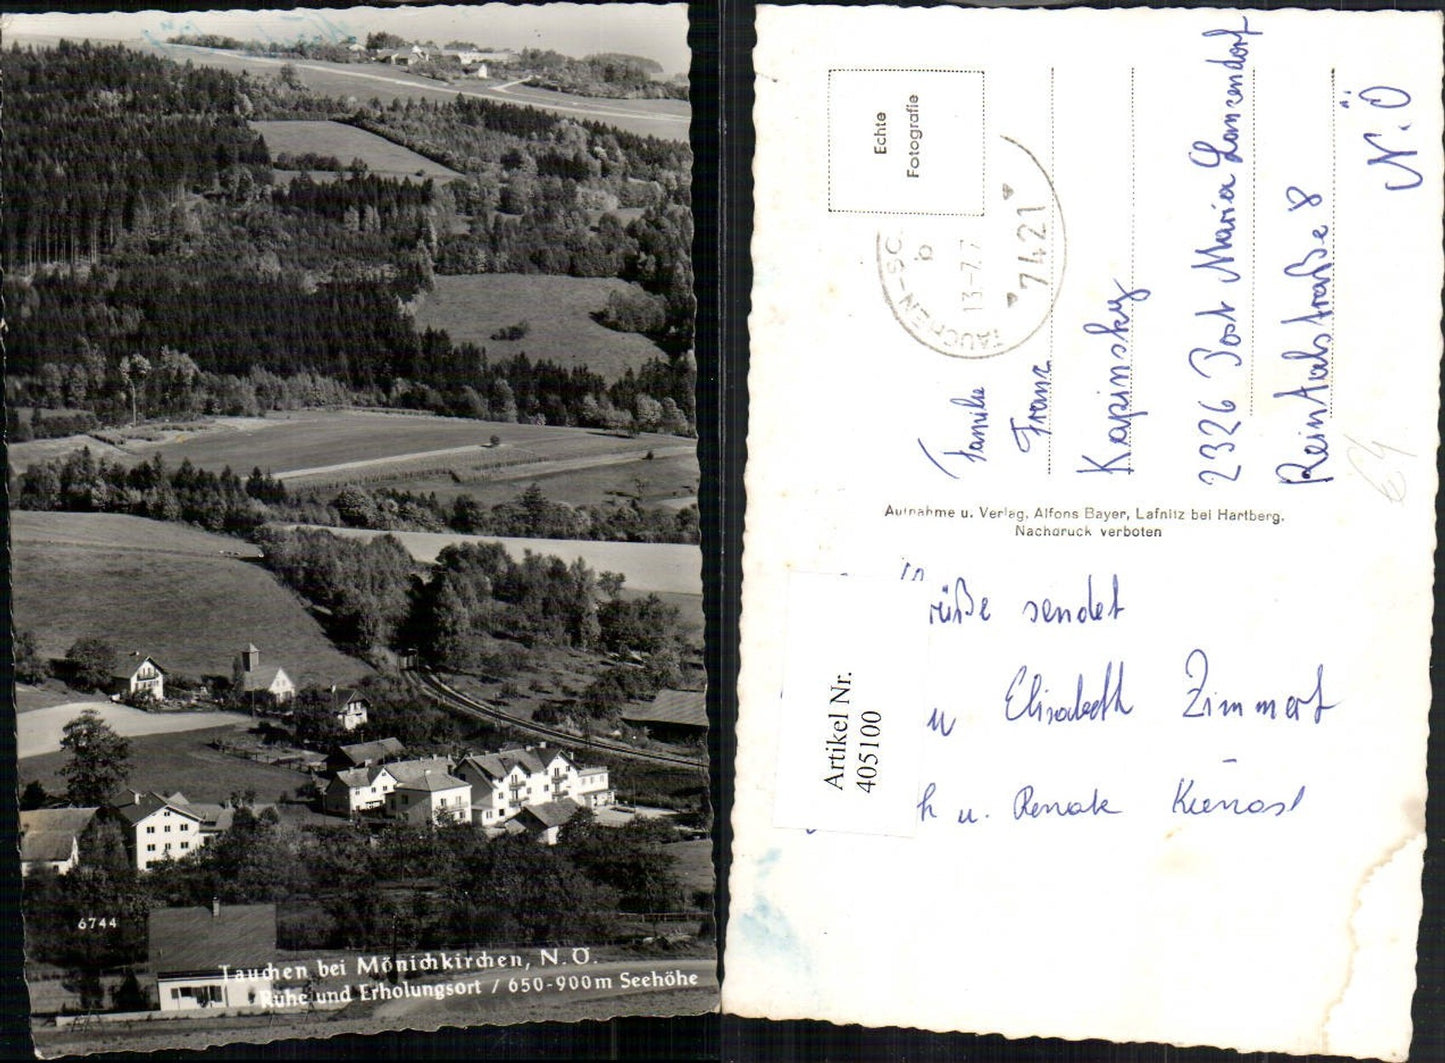 6744
Tauchen bei Mönichkirchen, N.Ö.
Ruhe und Erholungsort / 650-900m Seehöhe
Echte
Fotografie
TAUCHEN-SC
b
13-7.7
7421
Familie
Franz
Kapinsky
2326 Post Maria Lanzendorf
Reintalstraße 8
N.Ö
Aufnahme u. Verlag, Alfons Bayer, Lafnitz bei Hartberg.
Nachdruck verboten
rüße sendet
u Elisabeth Zimmert
u. Renate
Artikel Nr.
405100